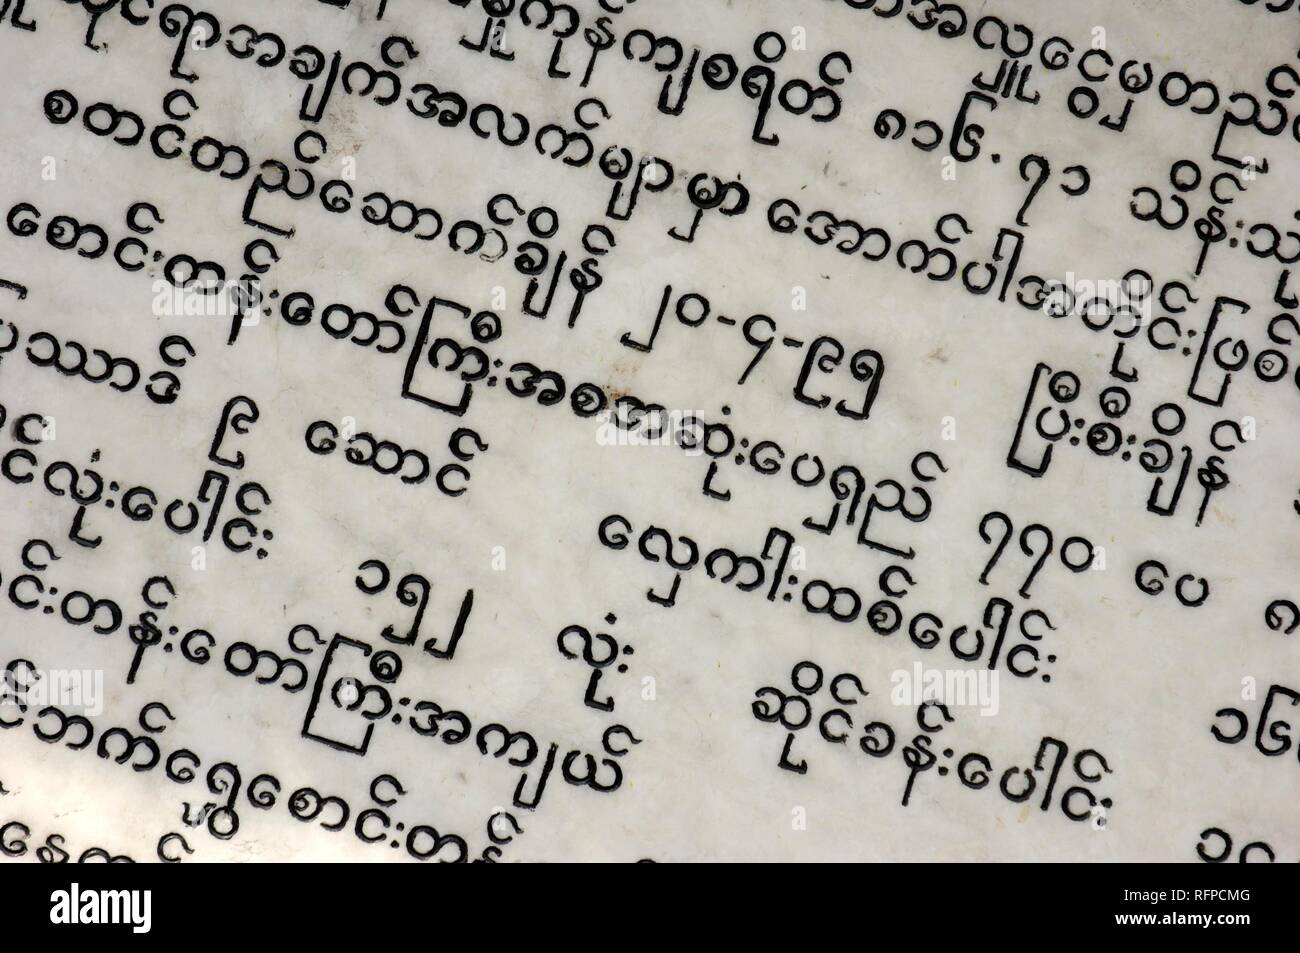 အလှူငွေမှတည်
ကုန်ကျစရိတ် ၈၁၆.၇၁ သိန်း
ဆိုင်ရာအချက်အလက်များမှာ အောက်ပါအတိုင်းဖြစ်
စတင်တည်ဆောက်ချိန် ၂၀-၄-၉၅ ပြီးစီးချိန်
စောင်းတန်းတော်ကြီးအစအဆုံးပေရှည် ၇၇၀ ပေ
ပြသာဒ် ၉ ဆောင် လှေကါးထစ်ပေါင်း
တိုင်လုံးပေါင်း ၁၅၂ လုံး ဆိုင်ခန်းပေါင်း
စောင်းတန်းတော်ကြီးအကျယ်
ဘက်ရှေ့စောင်းတန်း
alamy
Image ID: RFPCMG
www.alamy.com